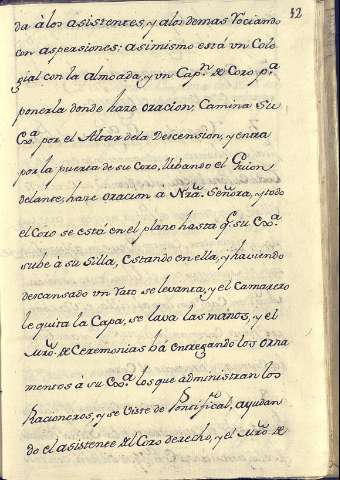 42
da à los asistentes, y alos demas Vociando
con aspersiones; asimismo está vn Cole
gial con la almoada, y vn Cap.n de Coro p.a
ponerla donde haze oracion, Camina Su
Ex.a por el Altar dela Descension, y entra
por la puerta de su Coro, llebando el Guion
delante, haze oracion a Nrã. Señora, y todo
el Coro se está en el plano hasta q.e su Ex.a
sube à su Silla, Estando en ella, y haviendo
descansado vn rato se levanta, y el Camarero
le quita la Capa, se lava las manos, y el
Mrõ. de Ceremonias bá entregando los orna
mentos à su Ex.a los que administran los
Racioneros, y se Viste de Pontifical, ayudan
do el asistente del Coro derecho, y el Mrõ. de